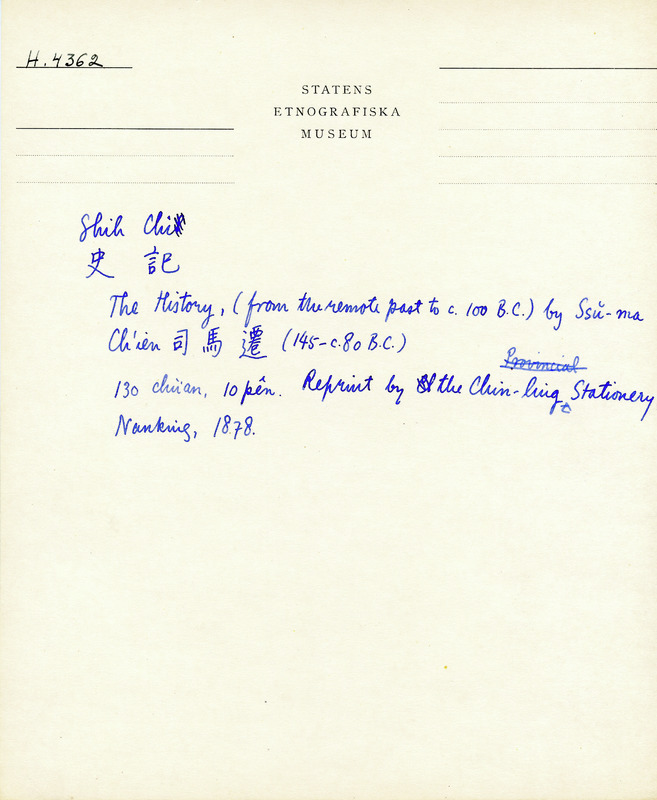 H.4362
STATENS
ETNOGRAFISKA
MUSEUM
Shih Chi
史 記
The History, (from the remote past to c. 100 B.C.) by Ssŭ-ma
Ch'ien 司 馬 遷 (145-c.80 B.C.)
Provincial
130 chüan, 10 pên. Reprint by the Chin-ling Stationery
Nanking, 1878.